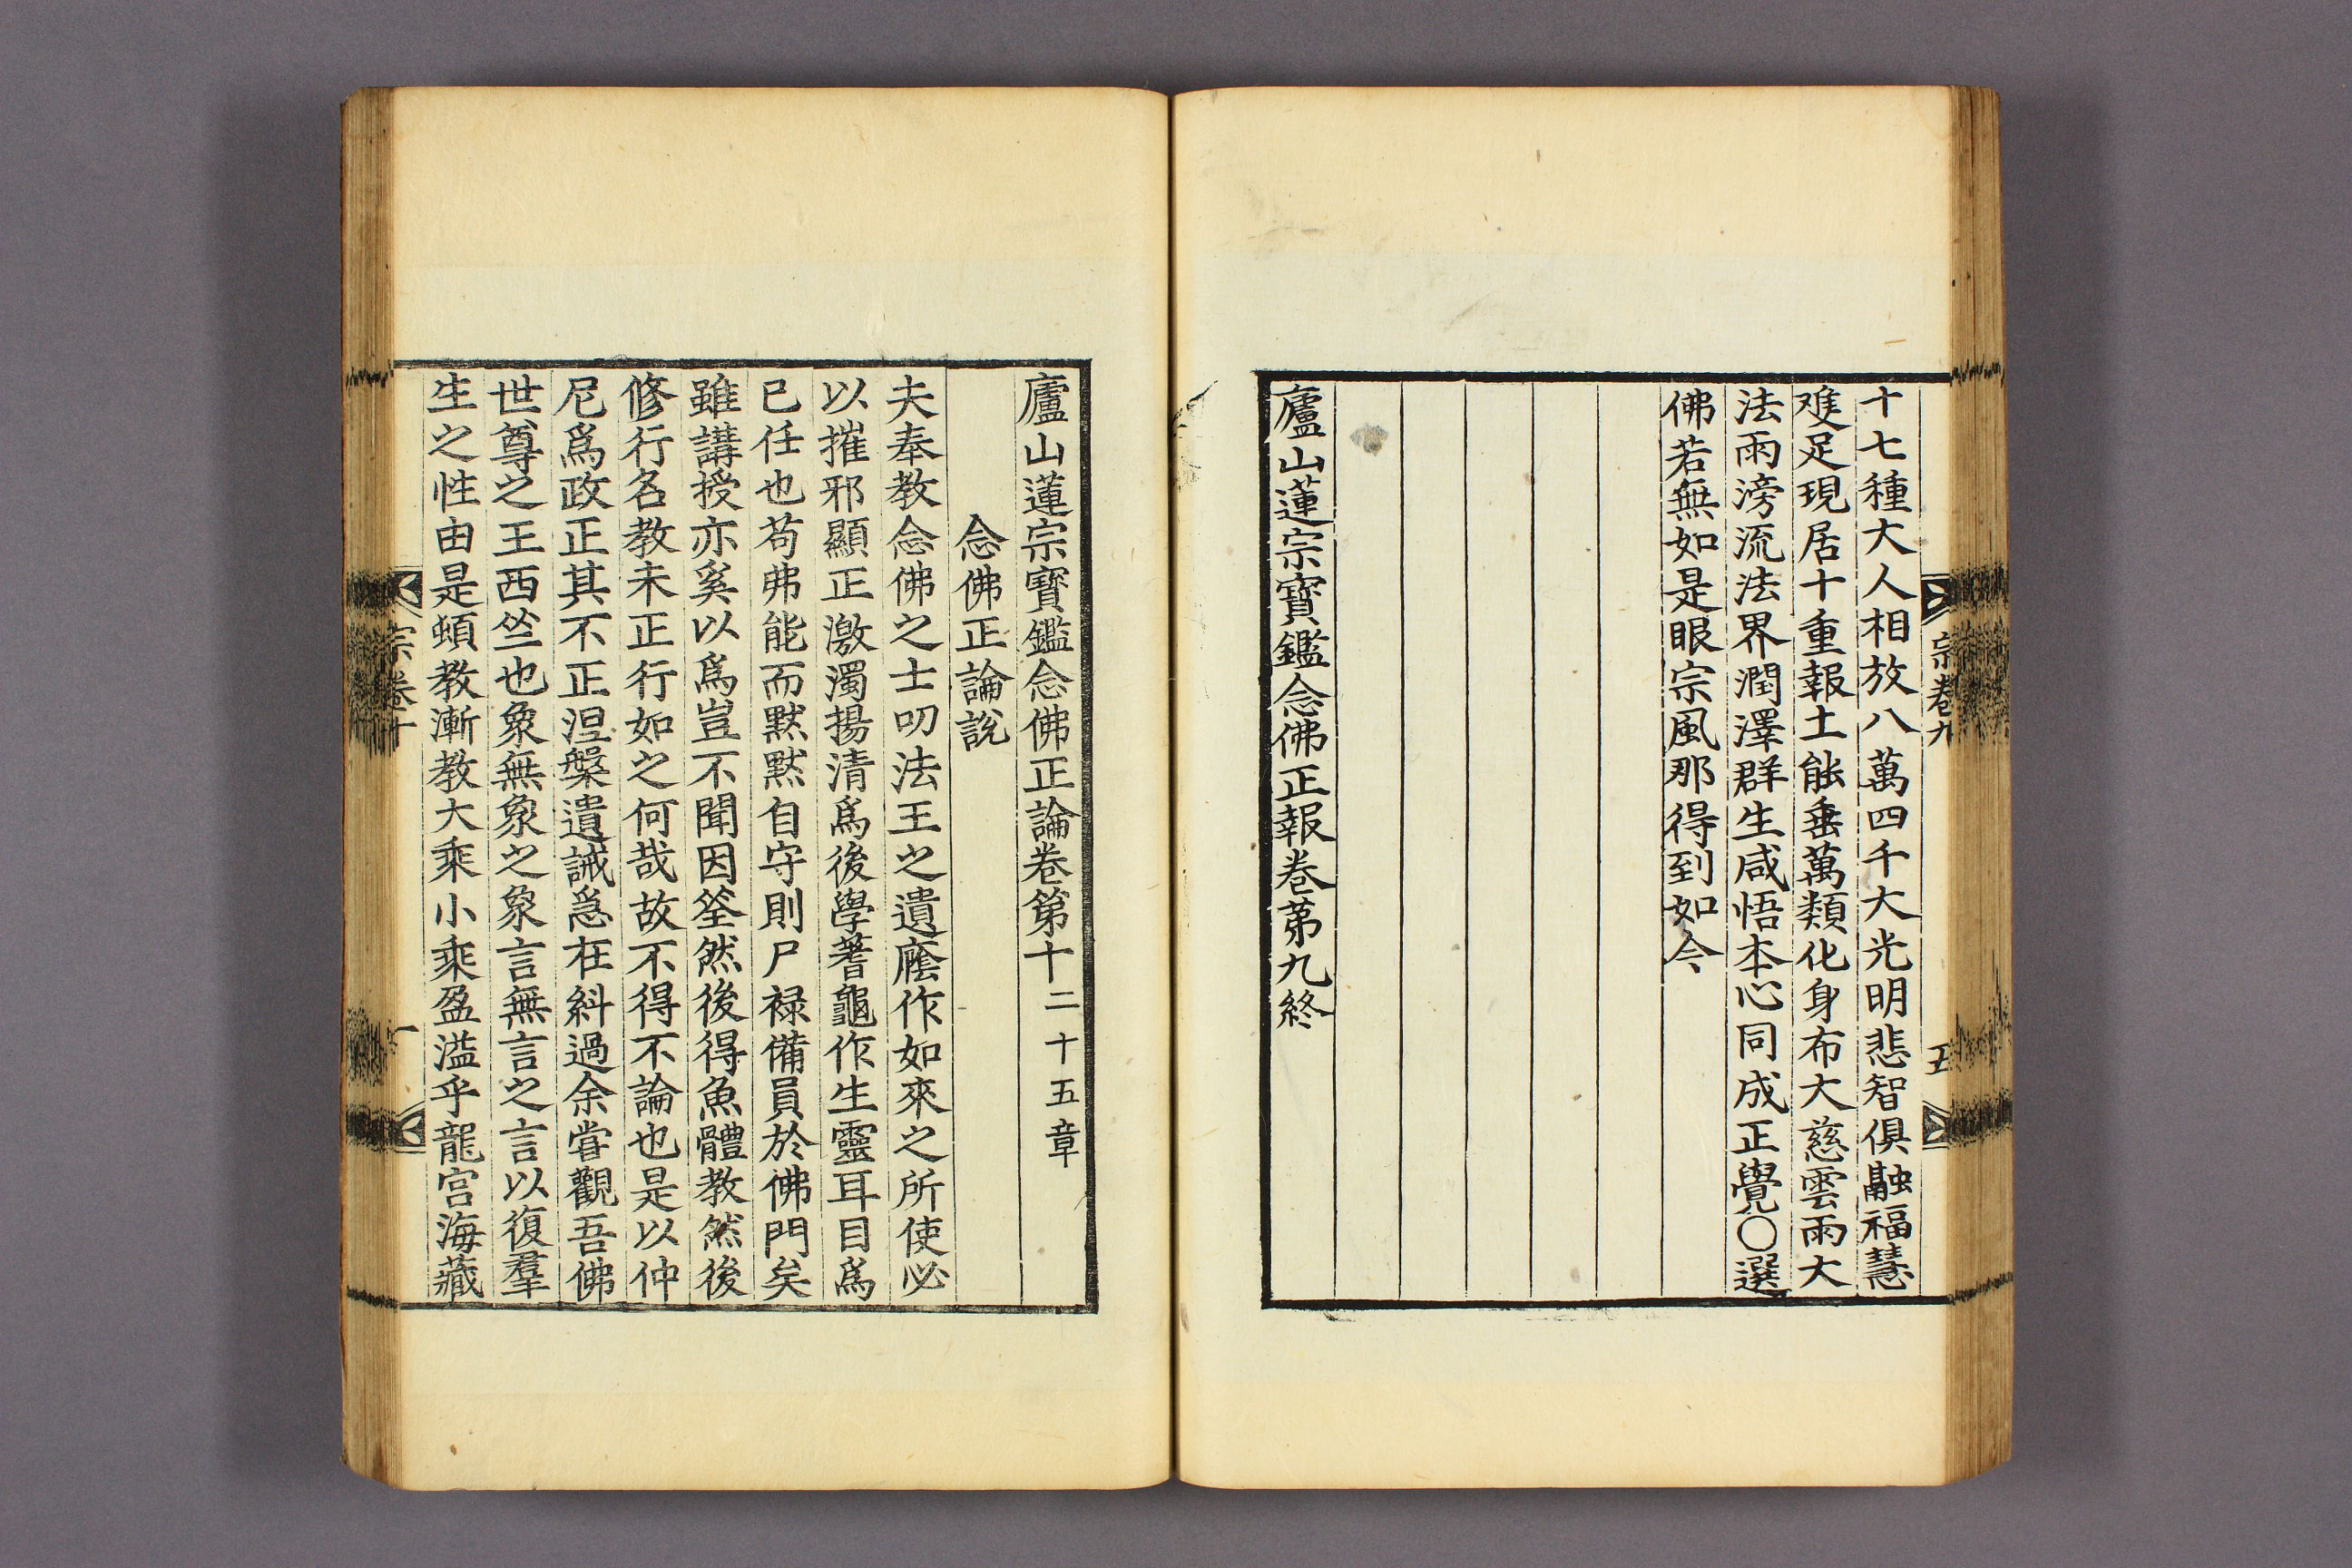 宗卷九
五
十七種大人相放八萬四千大光明悲智俱融福慧
难足現居十重報土能垂萬類化身布大慈雲雨大
法雨滂流法界潤澤群生咸悟本心同成正覺○選
佛若無如是眼宗風那得到如今
廬山蓮宗寶鑑念佛正報卷苐九終
廬山蓮宗寶鑑念佛正論卷第十二十五章
念佛正論說
夫奉教念佛之士叨法王之遺廕作如來之所使必
以摧邪顯正激濁揚清爲後學蓍龜作生靈耳目爲
已任也苟弗能而默默自守則尸禄備員於佛門矣
雖講授亦奚以爲豈不聞因筌然後得魚體教然後
修行名教未正行如之何哉故不得不論也是以仲
尼爲政正其不正涅槃遺誡急在糾過余嘗觀吾佛
世尊之王西竺也象無象之象言無言之言以復羣
生之性由是頓教漸教大乘小乘盈溢乎龍宫海藏
宗卷十
一